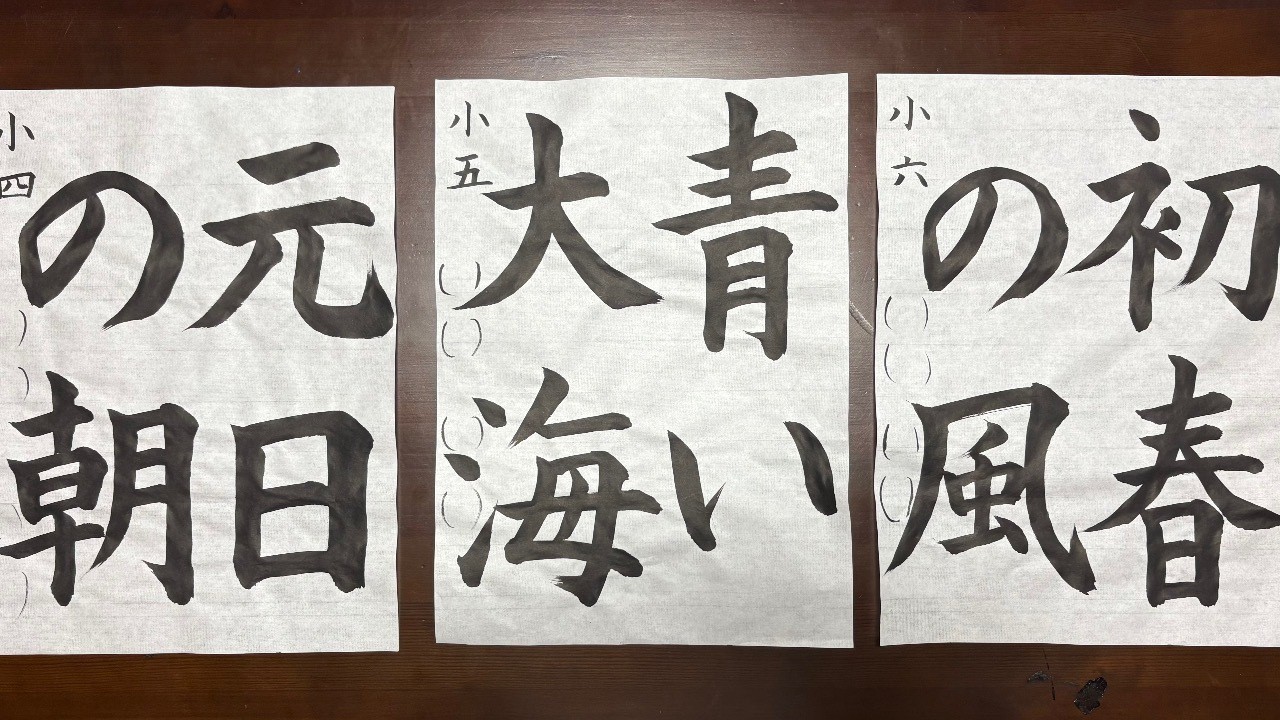 初春
の風
小六
青い
大海
小五
元日
の朝
小四